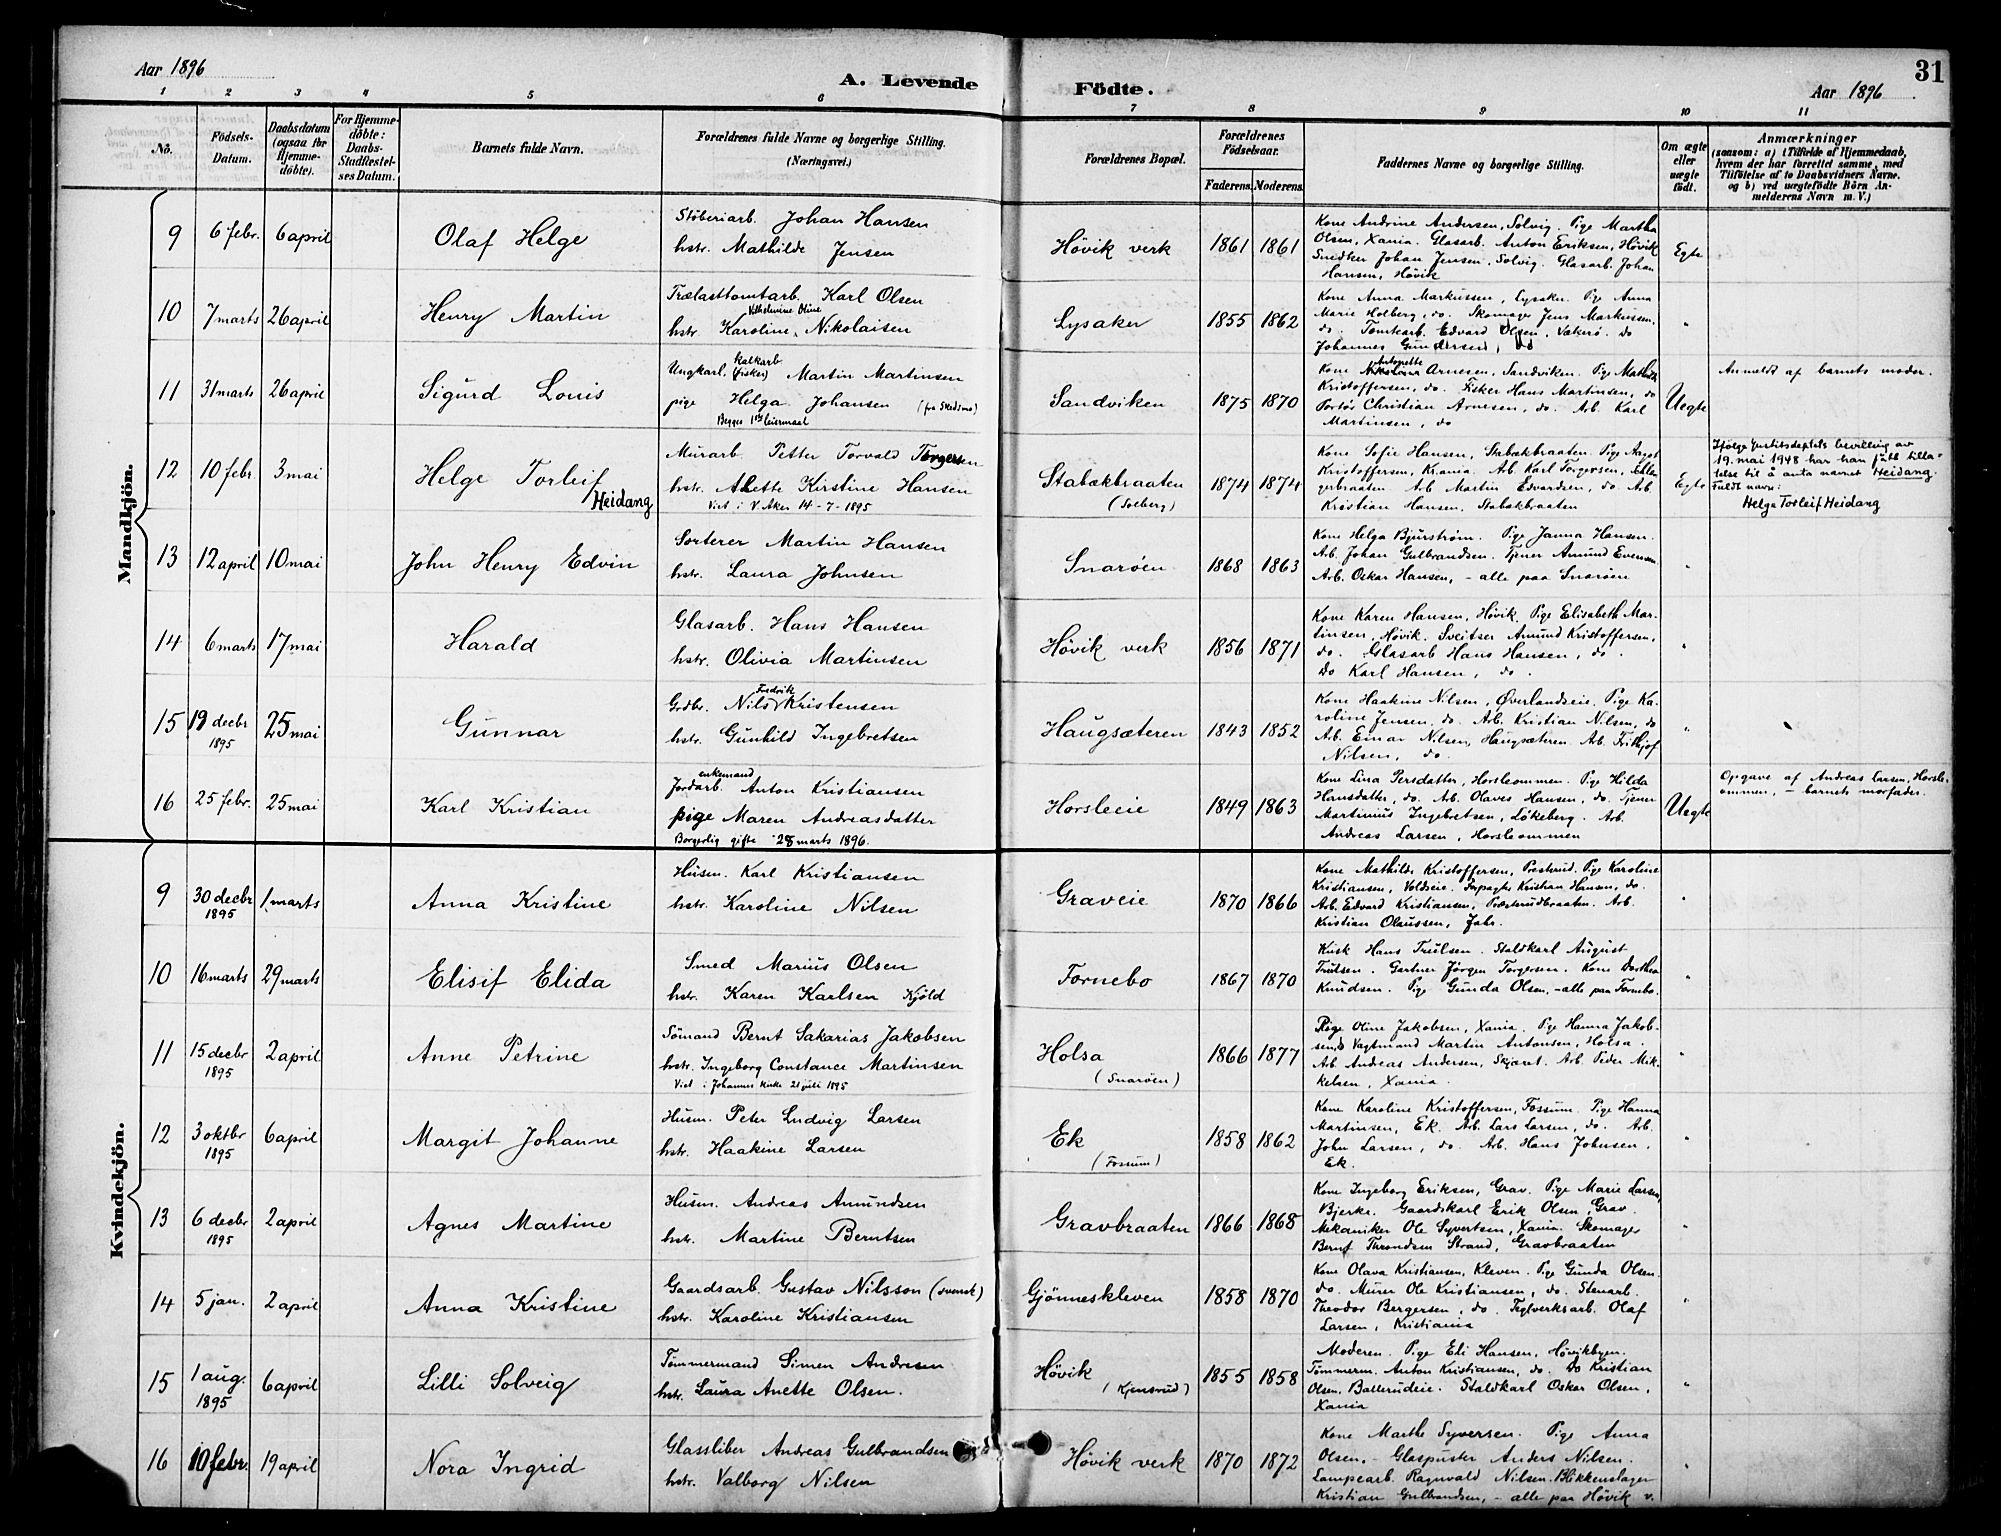 Aar 1896
A. Levende Födte.
Aar 1896
31
1 2 3 4 5 6 7 8 9 10 11
No.
Födsels-Datum.
Daabsdatum (ogsaa for Hjemmedöbte).
For Hjemmedöbte: Daabs-Stadfæstelses Datum.
Barnets fulde Navn.
Forældrenes fulde Navne og borgerlige Stilling. (Næringsvei.)
Forældrenes Bopæl.
Forældrenes Födselsaar.
Faderens. Moderens.
Faddernes Navne og borgerlige Stilling.
Om ægte eller uægte födt.
Anmærkninger (saasom: a) i Tilfælde af Hjemmedaab, hvem der har forrettet samme, med Tilföielse af to Daabsvidners Navne. og b) ved uægtefödte Börn Anmelderens Navn m. V.)
Mandkjön.
9 6 febr. 6 april Olaf Helge
Stöberiarb. Johan Hansen
hstr. Mathilde Jensen
Hövik verk 1861 1861
Kone Andrine Andersen, Solvig. Pige Martha
Olsen, Xania. Glasarb. Anton Eriksen, Hövik
Snedker Johan Jensen, Solvig. Glasarb. Johan
Hansen, Hövik
Egte
10 7 marts 26 april Henry Martin
Trælasttomtarb. Karl Olsen
Vilhelmine Oline
hstr. Karoline Nikolaisen
Lysaker 1855 1862
Kone Anna Markussen, Lysaker. Pige Anna
Marie Holberg, do. Skomager Jens Markussen,
do. Tomtearb. Edvard Olsen, Vækerö. Do
Johannes Gundersen, do
"
11 31 marts 26 april Sigurd Louis
kalkarb
Ungkarl, (fisker) Martin Martinsen
pige Helga Johansen (fra Skedsmo)
Begges 1ste leiermaal
Sandviken 1875 1870
Antonette
Kone Arnesen, Sandviken. Pige Mathilde
Kristoffersen, do. Fisker Hans Martinsen, do
Portör Christian Arnesen, do. Arb. Karl
Martinsen, do
Uegte
Anmeldt af barnets moder.
12 10 febr. 3 mai Helge Torleif
Heidang
Murarb. Petter Torvald Torgersen
hstr. Alette Kirstine Hansen
Viet i V. Aker 14-7-1895
Stabækbraaten
(Solberg)
1874 1874
Kone Sofie Hansen, Stabækbraaten. Pige Aagot
Kristoffersen, Krania. Arb Karl Torgersen,
Arb Martin Edvardsen, do. Arb.
Kristian Hansen, Stabækbraaten
Egte
Ifølge Justitsdeptets bevilling av
19. mai 1948 har han fått tilla-
telse til å anta navnet Heidang.
Fuldt navn:
Helge Torleif Heidang
13 12 april 10 mai John Henry Edvin
Sorterer Martin Hansen
hstr. Laura Johnsen
Snaröen 1868 1863
Kone Helga Bjurström. Pige Janna Hansen.
Arb. Johan Gulbrandsen. Tjener Amund Evensen
Arb. Oskar Hansen, - alle paa Snaröen
"
14 6 marts 17 mai Harald
Glasarb. Hans Hansen
hstr. Olivia Martinsen
Hövik verk 1856 1871
Kone Karen Hansen, Hövik, Pige Elisabeth Mar-
tinsen, Hövik. Sveitser Amund Kristoffersen,
do. Glasarb Hans Hansen, do.
Do Karl Hansen, do.
"
15 19 decbr 1895 25 mai Gunnar
Fredrik
Grdbr. Nils Kristensen
hstr. Gunhild Ingebretsen
Haugsæteren 1843 1852
Kone Haakine Nilsen, Øverlandseie. Pige Ka-
roline Jensen, do. Arb. Kristian Nilsen, do
Arb. Einar Nilsen, Haugsæteren. Arb. Frithjof
Nilsen, do.
"
16 25 febr. 25 mai Karl Kristian
enkemand
Jordarb. Anton Kristiansen
pige Maren Andreasdatter
Borgerlig gifte 28 marts 1896.
Horsleeie 1849 1863
Kone Lina Persdatter, Horsleommen. Pige Hilda
Hansdatter, do. Arb. Olaves Hansen, do. Tjener
Martinius Ingebretsen, Lökeberg. Arb.
Andreas Larsen, Horsleommen
Uegte
Opgave af Andreas Larsen, Horsle-
ommen, - barnets morfader.
Kvindekjön.
9 30 decbr 1895 1 marts Anna Kristine
Husm. Karl Kristiansen
hstr. Karoline Nilsen
Graveie 1870 1866
Kone Mathilde Kristoffersen, Presterud. Pige Karoline
Kristiansen, Voldseie. Forpagter Kristian Hansen, do.
Arb. Edvard Kristiansen, Præsterudbraaten. Arb.
Kristian Olaussen, Jahr.
"
10 16 marts 29 marts Elisif Elida
Smed Marius Olsen
hstr. Karen Karlsen Kjöld
Fornebo 1867 1870
Kusk Hans Trulsen. Staldkarl August
Trulsen. Gartner Jörgen Torgersen. Kone Dorthea
Knudsen. Pige Gunda Olsen, - alle paa Fornebo.
"
11 15 decbr 1895 2 april Anne Petrine
Sömand Bernt Sakarias Jakobsen
hstr. Ingeborg Constance Martinsen
Viet i Johannes kirke 21 juli 1895
Holsa
(Snaröen)
1866 1877
Pige Oline Jakobsen, Xania. Pige Hanna Jakob-
sen do Vagtmand Martin Antonsen, Holsa.
Arb. Andreas Andersen, Skjaret. Arb. Peder Mik-
kelsen, Xania.
"
12 3 oktbr 1895 6 april Margit Johanne
Husm. Peter Ludvig Larsen
hstr. Haakine Larsen
Ek
(Fossum)
1858 1862
Kone Karoline Kristoffersen, Fossum. Pige Hanna
Martinsen, Ek. Arb. Lars Larsen, do. Arb.
John Larsen, do. Arb. Hans Johnsen,
Ek.
"
13 6 decbr 1895 2 april Agnes Martine
Husm. Andreas Amundsen
hstr. Martine Berntsen
Gravbraaten 1866 1868
Kone Ingeborg Eriksen, Grav. Pige Marie Larsen,
Bjerke. Gaardskarl Erik Olsen, Grav.
Mekaniker Ole Syvertsen, Xania. Skomager
Bernt Throndsen Strand, Gravbraaten
"
14 5 jan. 2 april Anna Kristine
Gaardsarb. Gustav Nilsson (svensk)
hstr. Karoline Kristiansen
Gjönneskleven 1858 1870
Kone Olava Kristiansen, Kleven. Pige Gunda Olsen.
do. Murer Ole Kristiansen, do. Stenarb.
Theodor Bergersen, do. Teglverksarb. Olaf
Larsen, Kristiania
"
15 1 aug. 1895 6 april Lilli Solveig
Tömmermand Simen Andresen
hstr. Laura Anette Olsen.
Hövik
(Kjensrud)
1855 1858
Moderen. Pige Eli Hansen, Hövikbyen.
Tömmerm. Anton Kristiansen, do. Do Kristian
Olsen, Ballerudeie. Staldkarl Oskar Olsen,
Xania
"
16 10 febr. 19 april Nora Ingrid
Glassliber Andreas Gulbrandsen
hstr. Valborg Nilsen
Hövik verk 1870 1872
Kone Marthe Syversen. Pige Anna
Olsen, - Glaspuster Anders Nilsen.
Lampearb. Ragnvald Nilsen. Blikkenslager
Kristian Gulbrandsen, - alle paa Hövik v.
"